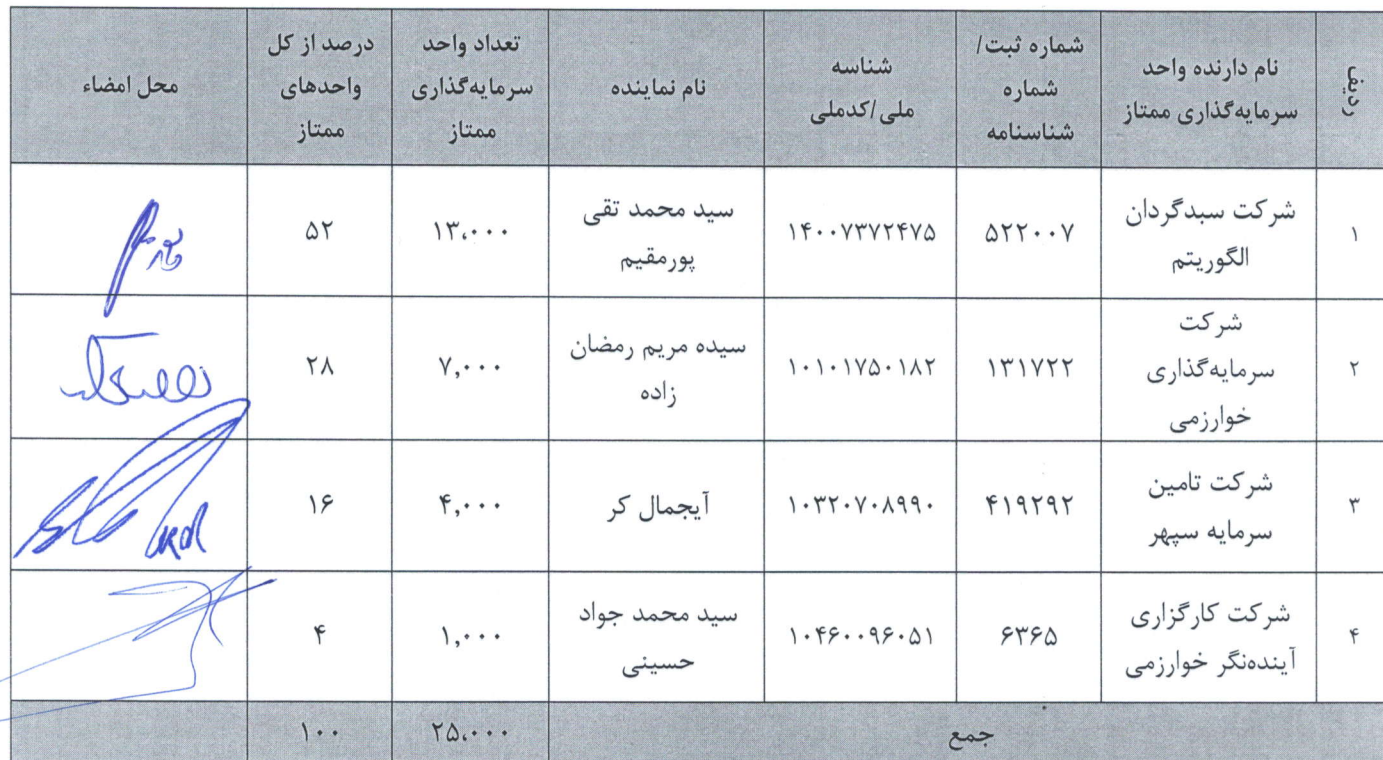 ردیف
نام دارنده واحد
سرمایه‌گذاری ممتاز
شماره ثبت/
شماره
شناسنامه
شناسه
ملی/کدملی
نام نماینده
تعداد واحد
سرمایه‌گذاری
ممتاز
درصد از کل
واحدهای
ممتاز
محل امضاء
۱
شرکت سبدگردان
الگوریتم
۵۲۲۰۰۷
۱۴۰۰۷۳۷۲۴۷۵
سید محمد تقی
پورمقیم
۱۳،۰۰۰
۵۲
۲
شرکت
سرمایه‌گذاری
خوارزمی
۱۳۱۷۲۲
۱۰۱۰۱۷۵۰۱۸۲
سیده مریم رمضان
زاده
۷,۰۰۰
۲۸
۳
شرکت تامین
سرمایه سپهر
۴۱۹۲۹۲
۱۰۳۲۰۷۰۸۹۹۰
آیجمال کر
۴,۰۰۰
۱۶
۴
شرکت کارگزاری
آینده‌نگر خوارزمی
۶۳۶۵
۱۰۴۶۰۰۹۶۰۵۱
سید محمد جواد
حسینی
۱,۰۰۰
۴
جمع
۲۵،۰۰۰
۱۰۰